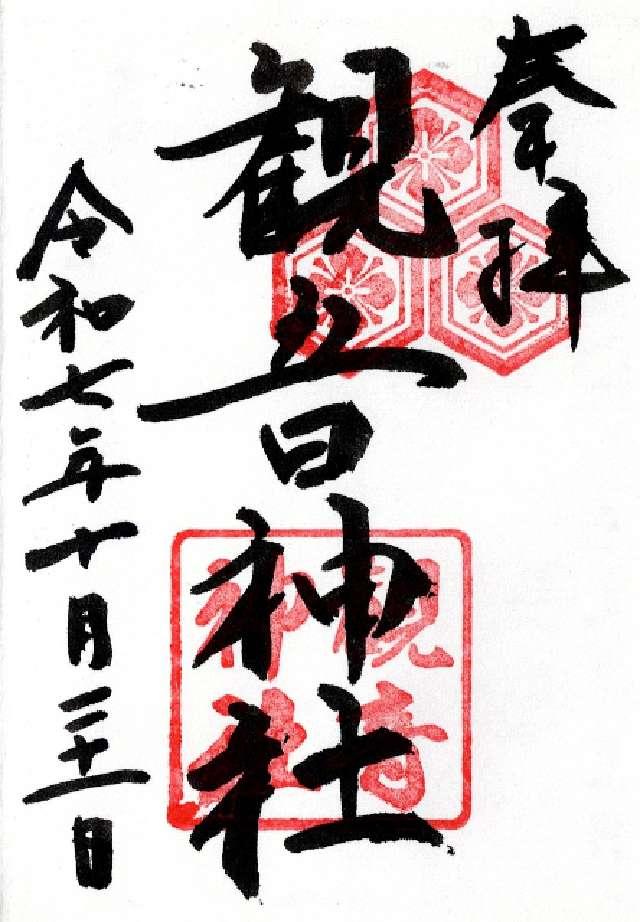 奉拝
観音神社
令和七年十月二十一日
観音
神社